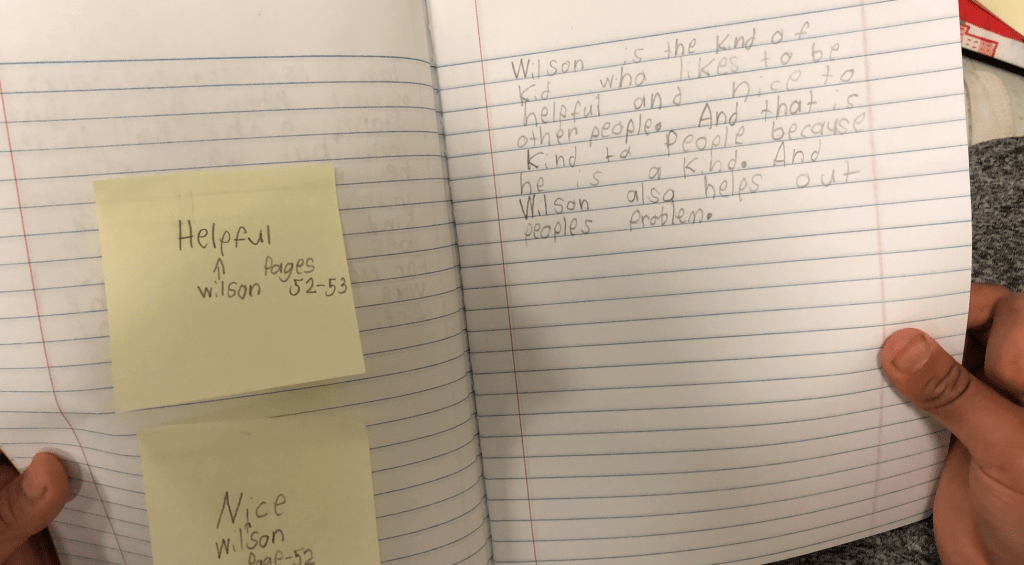 Helpful
↑ Pages
wilson 52-53
Nice
wilson
Page-52
Wilson is the kind of
kid who likes to be
helpful and nice to
other people. And that is
kind to people because
he is a kind. And
Wilson also helps out
peoples problem.